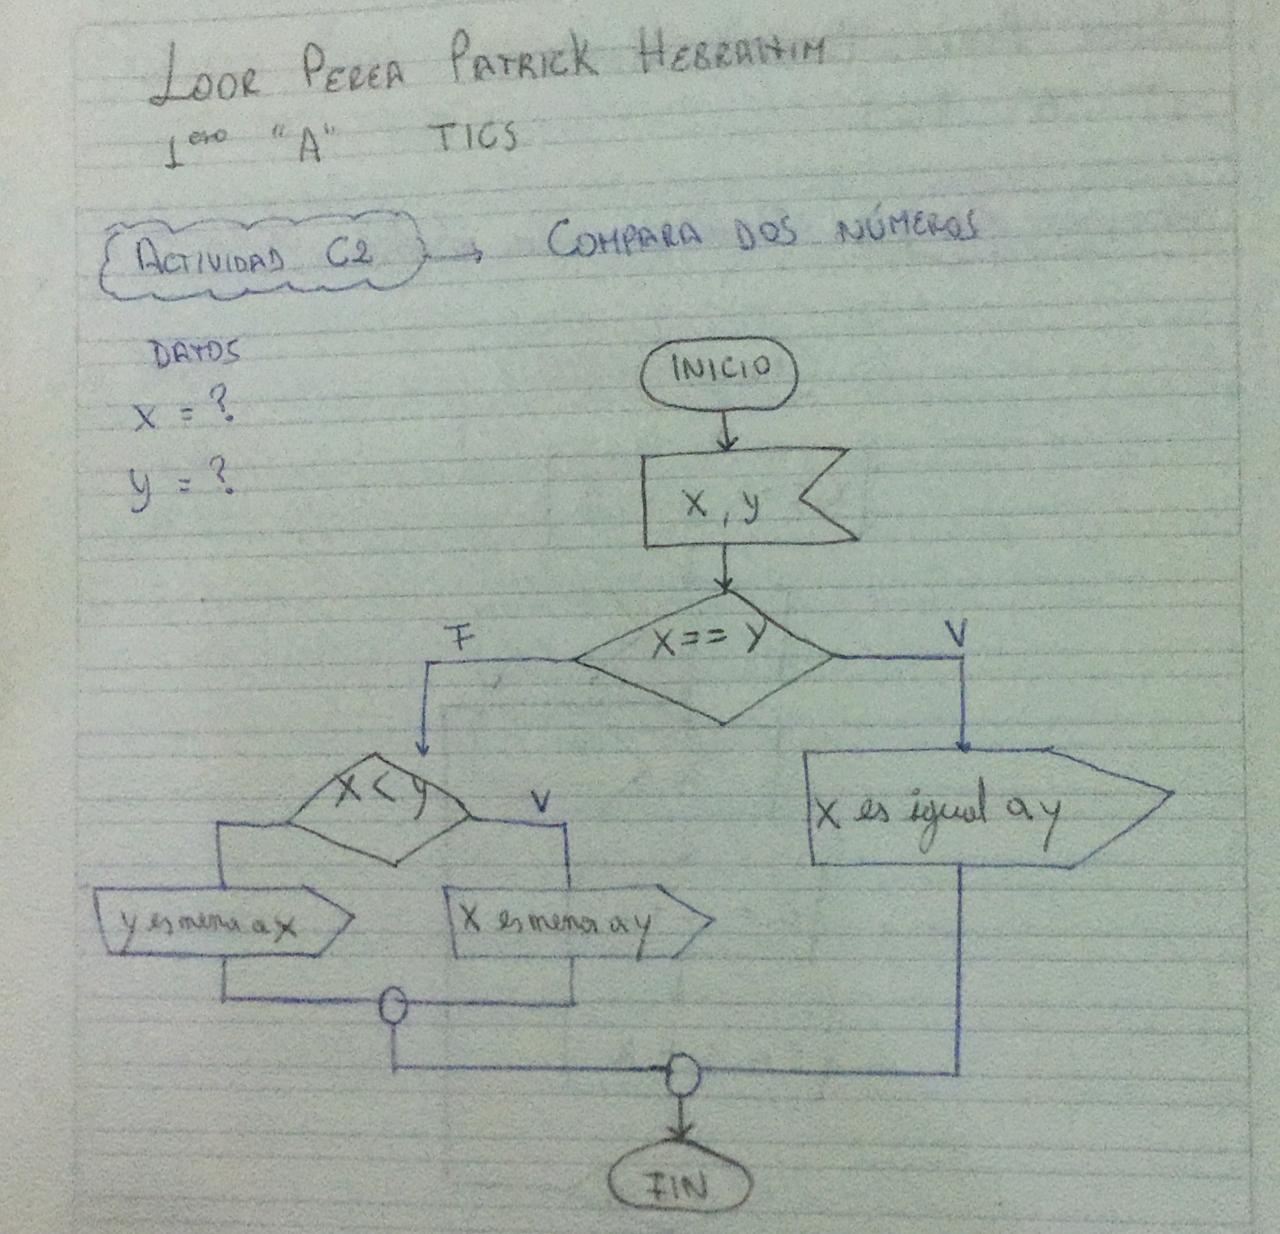 LOOR PEREA PATRICK HEBRAHIM
1ero "A" TICS
ACTIVIDAD C2 → COMPARA DOS NÚMEROS
DATOS
x = ?
y = ?
INICIO
x, y
X == Y
F
V
X < y
V
X es igual a y
y es menor a x
X es menor a y
FIN